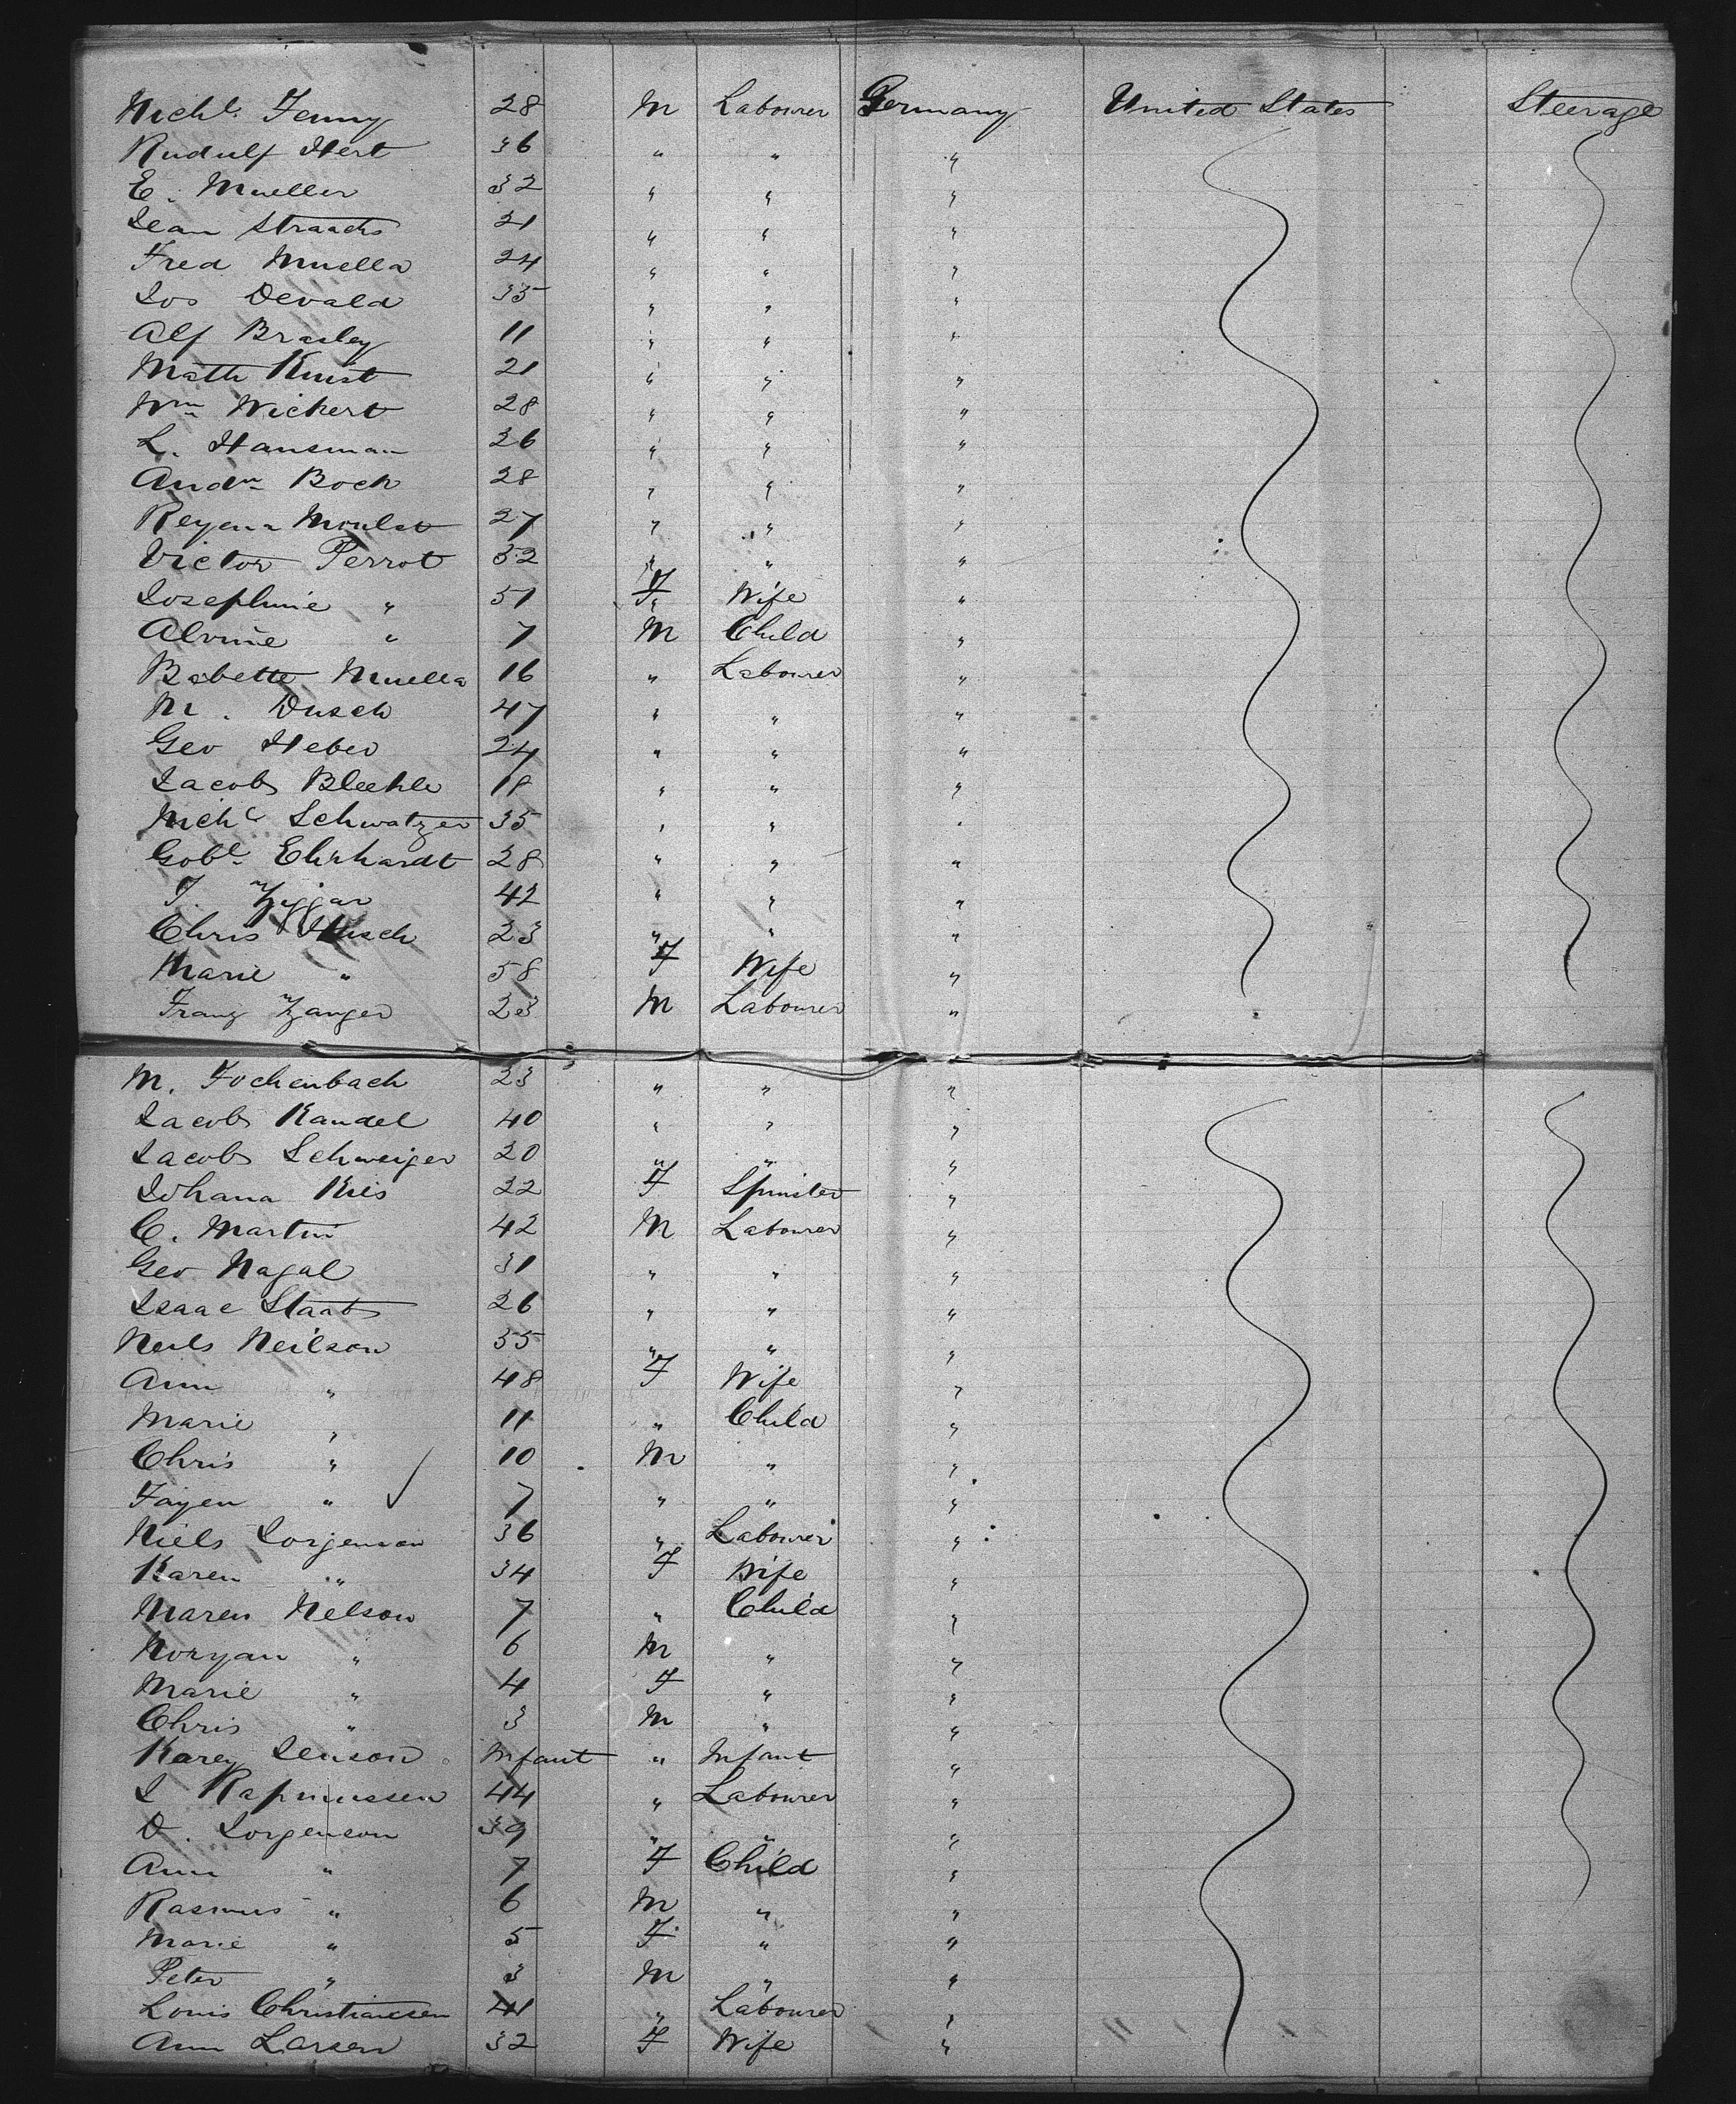 Michl. Jenny 28 M Labourer Germany United States Steerage
Rudulf Hert 36 " " "
E. Mueller 32 " " "
Jean Straachs 21 " " "
Fred Muella 24 " " "
Jos Devald 35 " " "
Alf Brasley 11 " " "
Math Knist 21 " " "
Wm Wichert 28 " " "
L. Hausman 26 " " "
Andw Boch 28 " " "
Reyena Moulst 27 " " "
Victor Perrot 52 " " "
Josephine " 51 F Wife "
Alvine " 7 M Child "
Babette Muella 16 " Labourer "
M. Dusch 47 " " "
Geo Heber 24 " " "
Jacob Bleehle 18 " " "
Michl Schwatzer 35 " " "
Gobl Ehrhardt 28 " " "
T. Ziggar 42 " " "
Chris Husch 23 " " "
Marie " 58 F Wife "
Franz Zanger 23 M Labourer "
M. Fochenbach 23 " " "
Jacob Kandel 40 " " "
Jacob Schweiger 20 " " "
Johana Kies 22 F Spinster "
C. Martin 42 M Labourer "
Geo Nagal 31 " " "
Isaac Staab 26 " " "
Neils Neilson 55 " " "
Ann " 48 F Wife "
Marie " 11 " Child "
Chris " 10 M " "
Fayen " 7 " " "
Niels Jorgenson 36 " Labourer "
Karen " 34 F Wife "
Maren Nelson 7 " Child "
Noryan " 6 M " "
Marie " 4 F " "
Chris " 3 M " "
Karey Jenson Infant " Infant "
J Rapmussen 44 " Labourer "
D. Jorgenson 39 " " "
Ann " 7 F Child "
Rasmus " 6 M " "
Marie " 5 F " "
Peter " 3 M " "
Louis Christiansen 41 " Labourer "
Ann Larsen 32 F Wife "